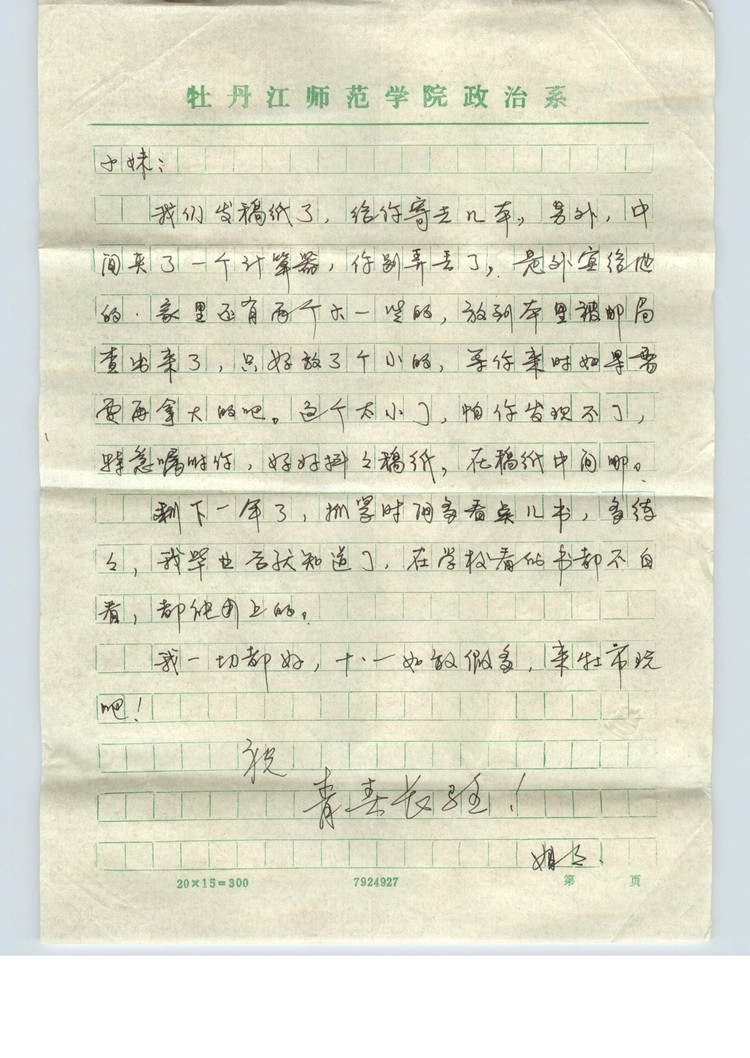 牡丹江师范学院政治系
小妹：
我们发稿纸了，给你寄去几本，另外，中
间夹了一个计算器，你别弄丢了，是外宾给他
的．家里还有两个大一些的，放到本里被邮局
查出来了，只好放了个小的，等你来时如果需
要再拿大的吧。这个太小了，怕你发现不了，
特意嘱咐你，好好抖々稿纸，在稿纸中间哪。
剩下一年了，抓紧时间多看点儿书，多练
々，我毕业后才知道了，在学校看的书都不白
看，都能用上的。
我一切都好，十．一如放假多，来牡市玩
吧！
祝
青春长驻！
姐々．
20×15=300 7924927 第 页